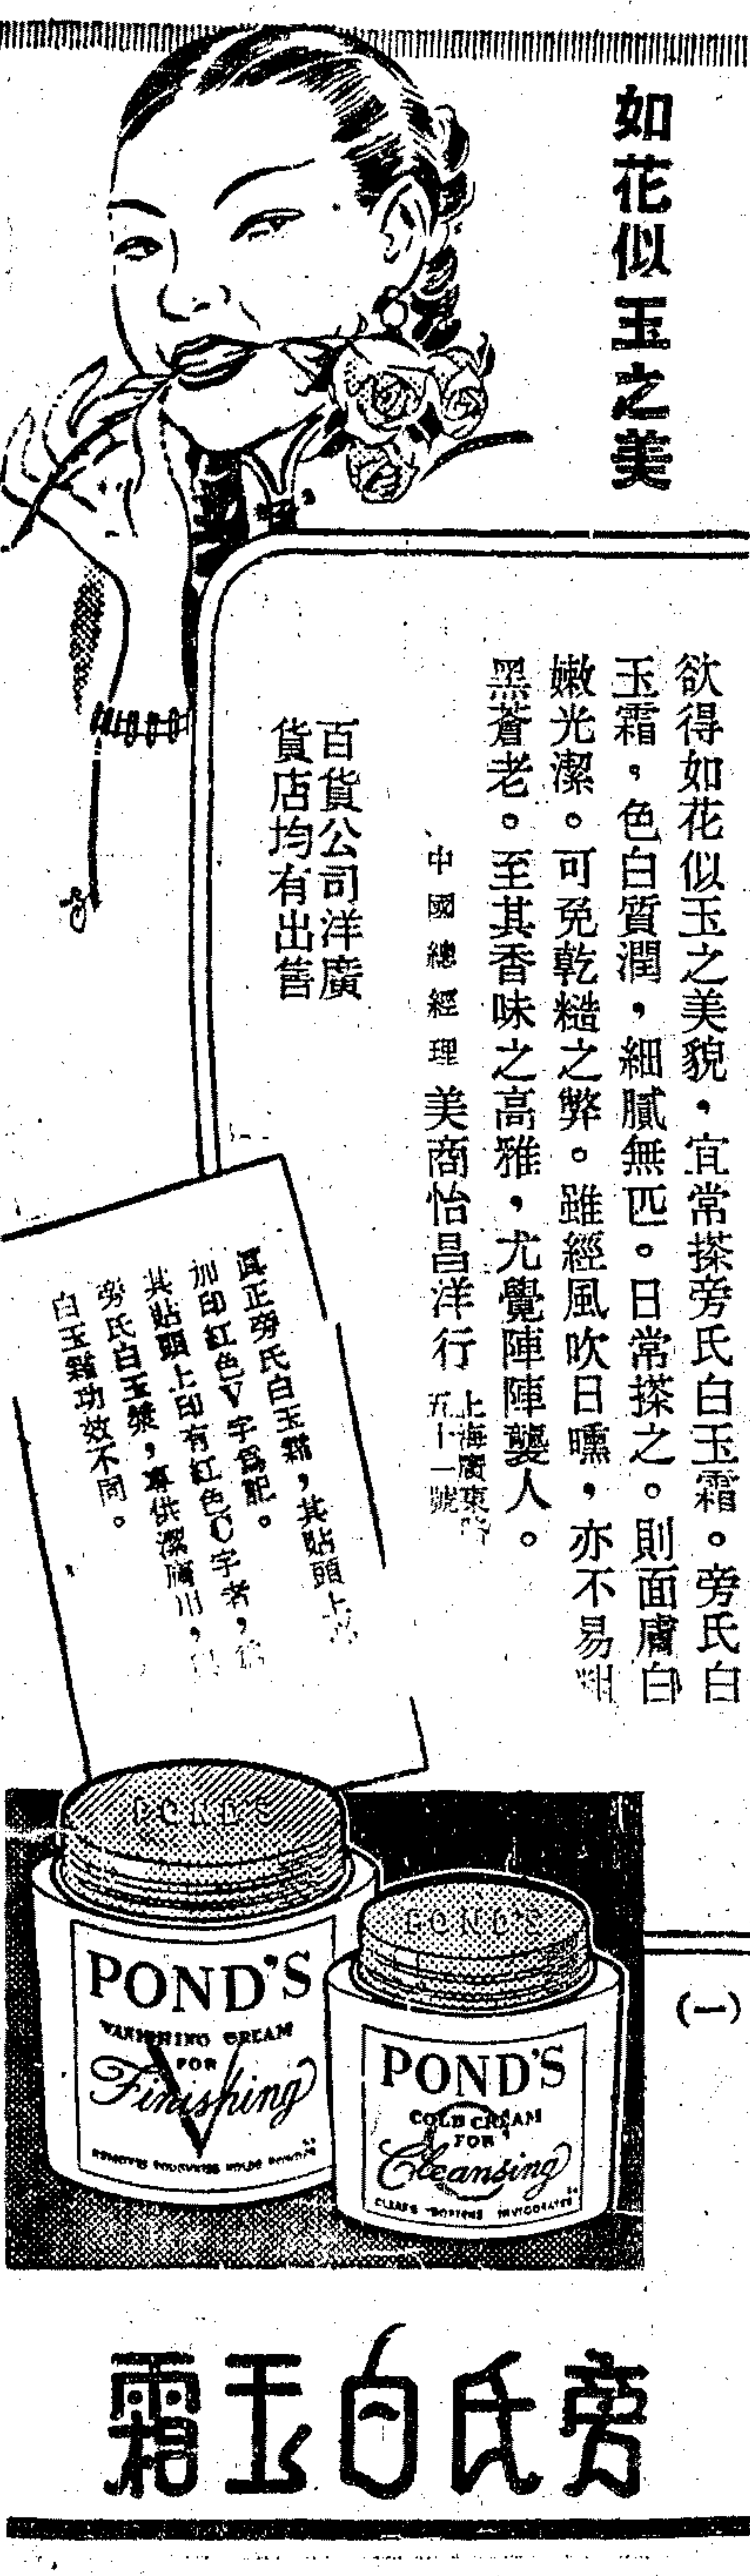 如花似玉之美
欲得如花似玉之美貌，宜常搽旁氏白玉霜。旁氏白
玉霜。色白質潤，細膩無匹。日常搽之。則面膚白
嫩光潔。可免乾糙之弊。雖經風吹日曛，亦不易粗
黑蒼老。至其香味之高雅，尤覺陣陣襲人。
中國總經理 美商怡昌洋行 上海廣東路
五十一號
百貨公司洋廣
貨店均有出售
真正旁氏白玉霜，其貼頭上
加印紅色V字為記。
其貼頭上印有紅色C字者，
旁氏白玉漿，專供潔膚用，
白玉霜功效不同。
POND'S
POND'S
VANISHING CREAM
FOR
Finishing
POND'S
POND'S
COLD CREAM
FOR
Cleansing
CLEARS SOFTENS INVIGORATES
(一)
旁氏白玉霜